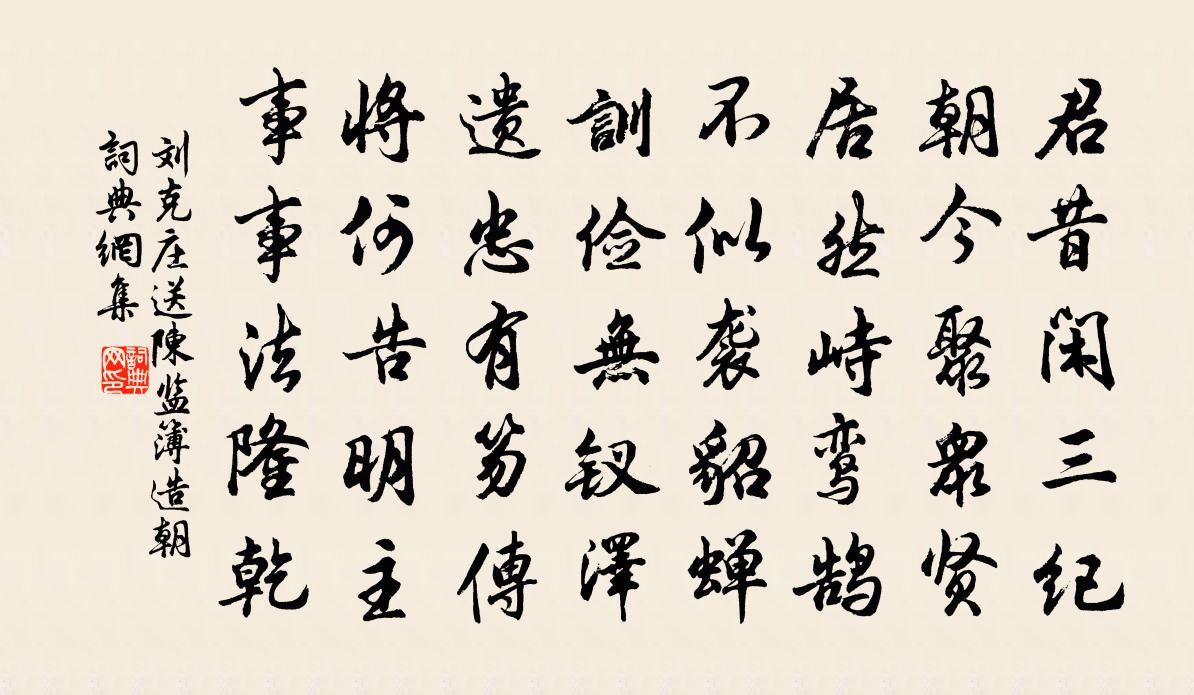 君昔闲三纪
朝今聚衆贤
居然峙鸾鹄
不似袭貂蝉
訓俭無钗澤
遗忠有笏傳
将何告明主
事事法隆乾
刘克庄送陳监簿造朝
詞典網集
詞典网印